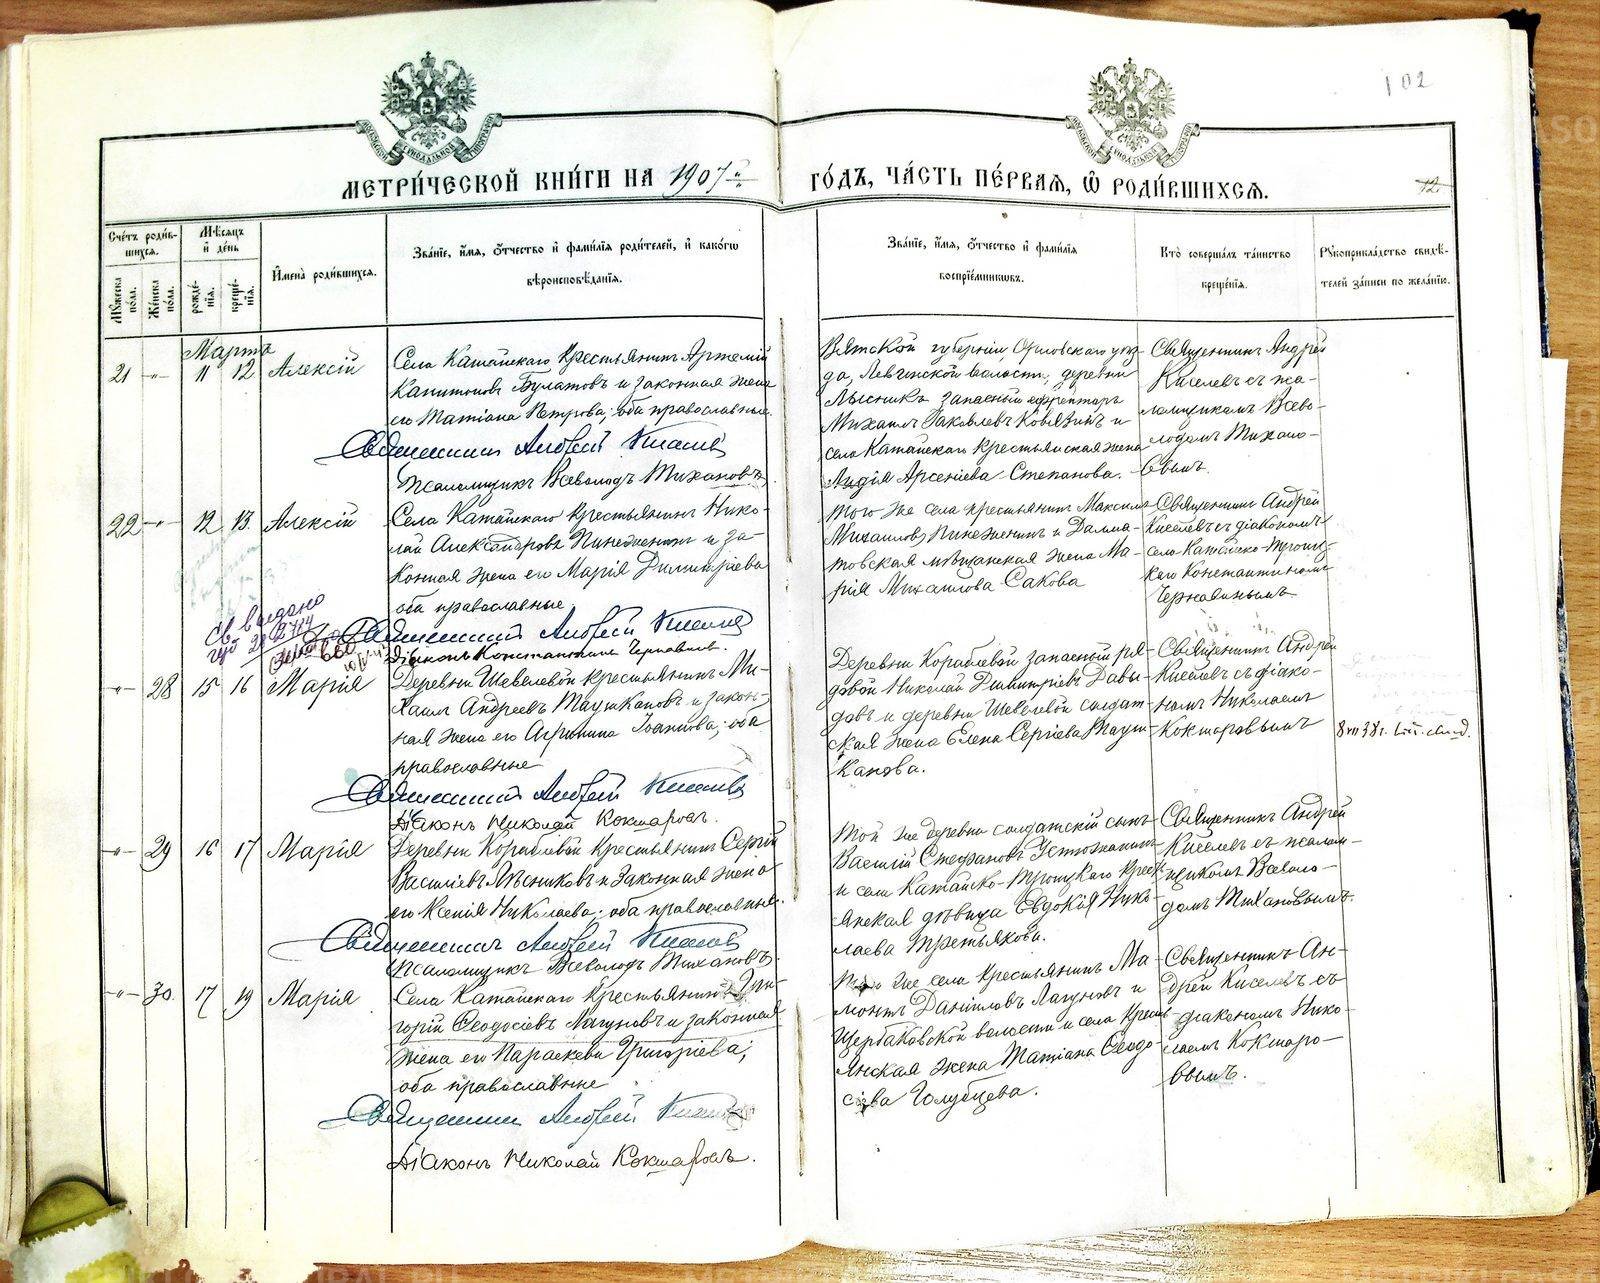 102
МЕТРИ́ЧЕСКОЙ КНИ́ГИ НА 1907й
ГО́ДЪ, ЧА́СТЬ ПЕ́РВАѦ, Ѡ РОДИ́ВШИХСѦ.
12
Сче́тъ роди́в-
шихся.
Мѣ́сяцъ
и́ де́нь
Му́жеска
по́ла.
Же́нска
по́ла.
рожде́-
нїя.
креще́-
нїя.
И҆мена̀ роди́вшихся.
Зва́нїе, и҆́мя, ѻ҆́тчество и҆ фами́лїя роди́телей, и҆ како́гѡ
вѣроисповѣ́данїя.
Зва́нїе, и҆́мя, ѻ҆́тчество и҆ фами́лїя
воспрїе́мниковъ.
Кто̀ соверша́лъ та́инство
креще́нїя.
Рꙋкоприкла́дство свидѣ́-
телей за́писи по жела́нїю.
Марта
21 -"- 11 12 Алексій
Села Катайскаго крестьянинъ Артемій
Капитоновъ Булатовъ и законная жена
его Татіана Петрова; оба православные.
Священникъ Андрей Киселевъ
Псаломщикъ Всеволодъ Тихановъ
Вятской губерніи, Орловскаго уѣз-
да, Левинской волости, деревни
запасный ефрейторъ
Михаилъ Іаковлевъ Ковязинъ и
села Катайскаго крестьянская жена
Лидія Арсеніева Степанова.
Священникъ Андрей
Киселевъ съ пса-
ломщикомъ Всево-
лодомъ Тихано-
вымъ.
22 -"- 12 13 Алексій
Села Катайскаго крестьянинъ Нико-
лай Александровъ Пинеженинъ и за-
конная жена его Марія Димитріева
оба православные.
Священникъ Андрей Киселевъ
Діаконъ Константинъ Чернавинъ.
Того же села крестьянинъ Максимъ
Михаиловъ Пинеженинъ и Далма-
товская мѣщанская жена Ма-
рія Михаилова Сакова
Священникъ Андрей
Киселевъ съ діакономъ
села Катайско-Троиц-
каго Константиномъ
Чернавинымъ
-"- 28 15 16 Марія
Деревни Шевелевой крестьянинъ Ми-
хаилъ Андреевъ Таушкановъ и закон-
ная жена его Агрипина Іоаннова; оба
православные
Священникъ Андрей Киселевъ
Діаконъ Николай Кокшаровъ.
Деревни Кораблевой запасный ря-
довой Николай Димитріевъ Давы-
довъ и деревни Шевелевой солдат-
ская жена Елена Сергіева Тауш-
канова.
Священникъ Андрей
Киселевъ съ діако-
номъ Николаемъ
Кокшаровымъ
-"- 29 16 17 Марія
Деревни Кораблевой крестьянинъ Сергій
Василіевъ Лѣсниковъ и законная жена
его Ксенія Николаева; оба православные.
Священникъ Андрей Киселевъ
Псаломщикъ Всеволодъ Тихановъ
Той же деревни солдатскій сынъ
Василій Стефановъ Устюжанинъ
и села Катайско-Троицкаго кресть-
янская дѣвица Евдокія Нико-
лаева Третьякова.
Священникъ Андрей
Киселевъ съ псалом-
щикомъ Всеволо-
домъ Тихановымъ.
-"- 30 17 19 Марія
Села Катайскаго крестьянинъ Гри-
горій Ѳеодосіевъ Лагуновъ и законная
жена его Параскева Григоріева;
оба православные
Священникъ Андрей Киселевъ
Діаконъ Николай Кокшаровъ.
Того же села крестьянинъ Ма-
монтъ Даніиловъ Лагуновъ и
Щербаковской волости и села кресть-
янская жена Татіана Ѳеодо-
сіева Голубцева.
Священникъ Ан-
дрей Киселевъ съ
діакономъ Нико-
лаемъ Кокшаро-
вымъ.